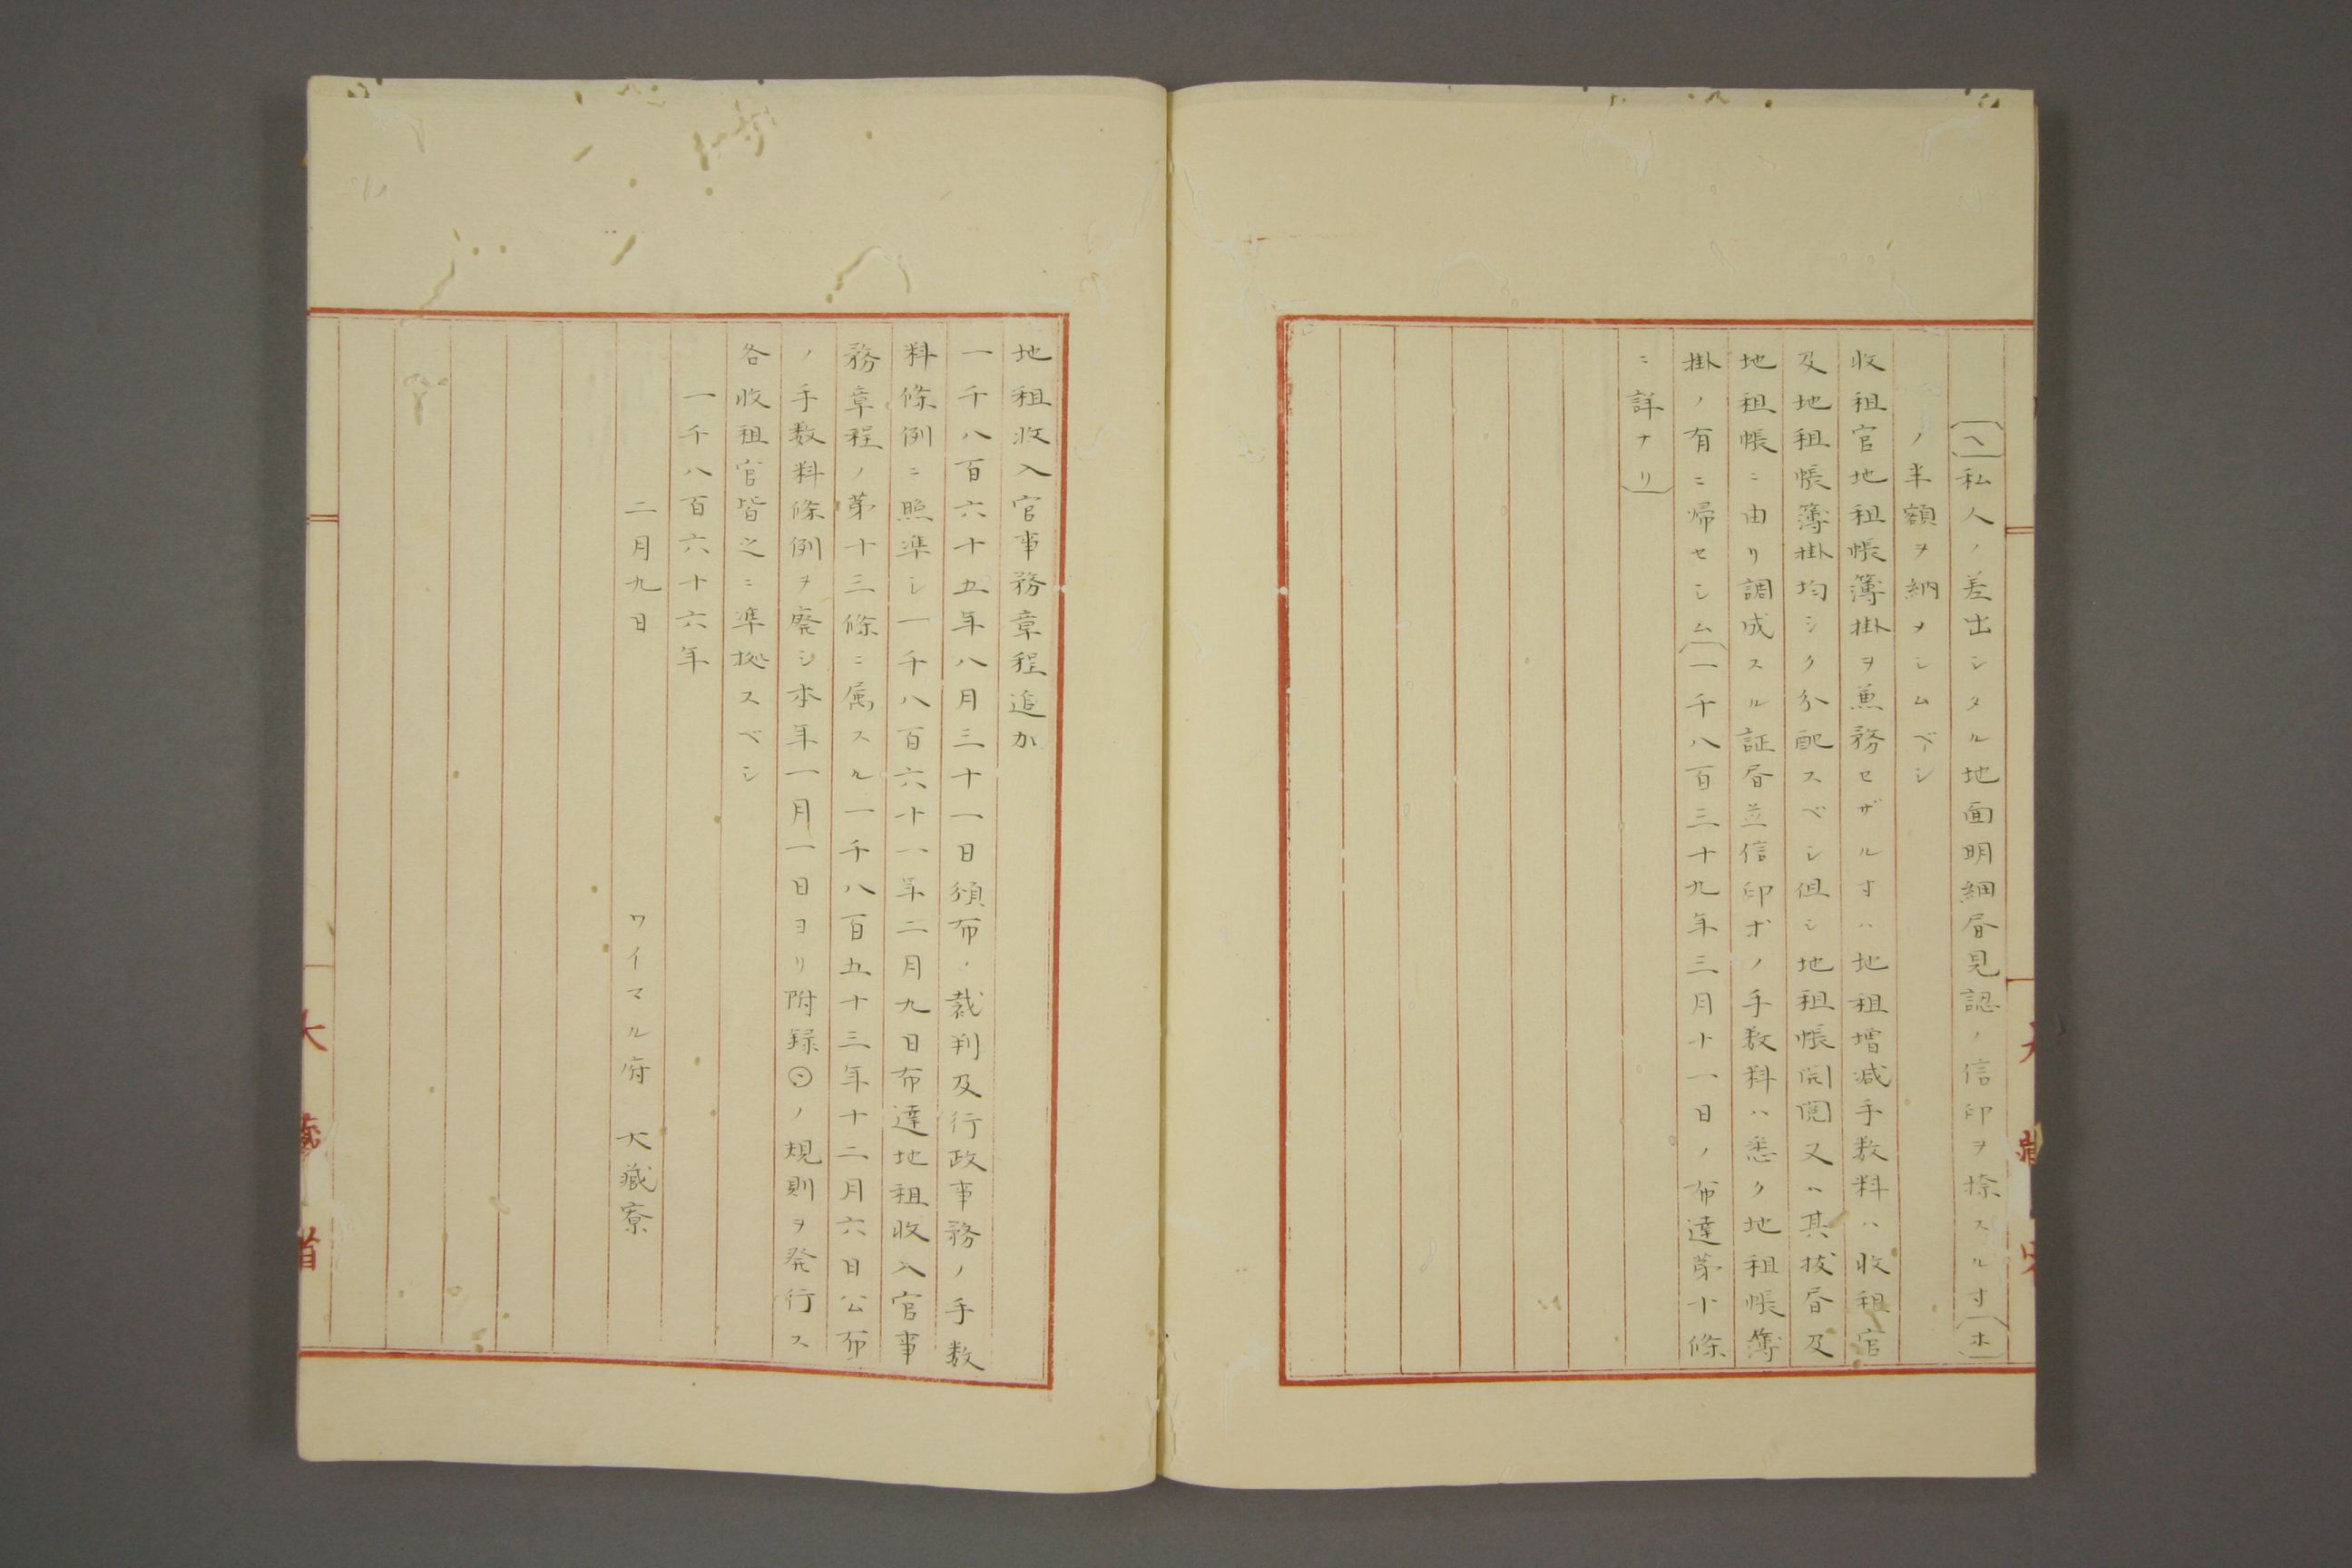 (ヘ)私人ノ差出シタル地面明細書見認ノ信印ヲ捺スル寸(ホ)
ノ半額ヲ納メシムベシ
收租官地租帳簿掛ヲ兼務セザル寸ハ地租増減手数料ハ收租官
及地租帳簿掛均シク分配スベシ但シ地租帳開閲又ハ其抜書及
地租帳ニ由リ調成スル証書並信印ホノ手数料ハ悉ク地租帳簿
掛ノ有ニ帰セシム(一千八百三十九年三月十一日ノ布達第十條
ニ詳ナリ)
地租收入官事務章程追加
一千八百六十五年八月三十一日頒布ノ裁判及行政事務ノ手数
料條例ニ照準シ一千八百六十一年二月九日布達地租收入官事
務章程ノ第十三條ニ属スル一千八百五十三年十二月六日公布
ノ手数料條例ヲ廃シ本年一月一日ヨリ附録㋺ノ規則ヲ発行ス
各收租官皆之ニ準拠スベシ
一千八百六十六年
二月九日 ワイマル府 大蔵寮
大藏省